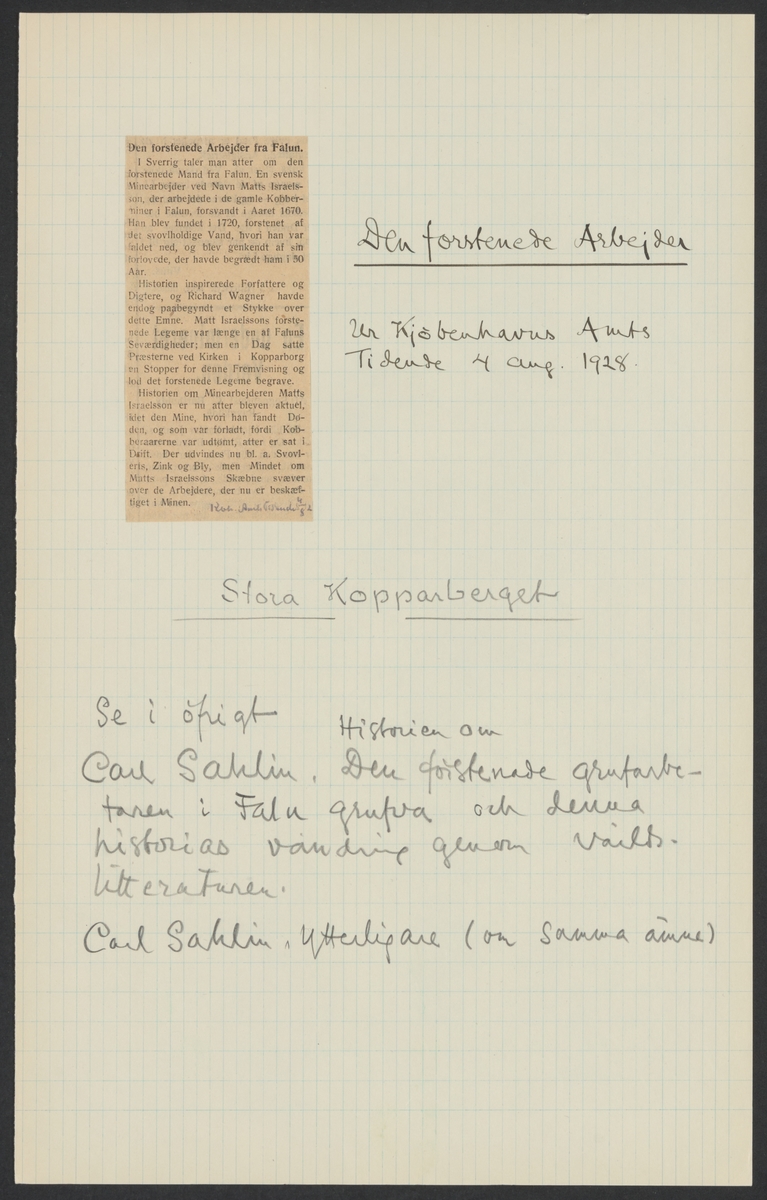 Den forstenede Arbejder fra Falun.
I Sverrig taler man atter om den
forstenede Mand fra Falun. En svensk
Minearbejder ved Navn Matts Israels-
son, der arbejdede i de gamle Kobber-
miner i Falun, forsvandt i Aaret 1670.
Han blev fundet i 1720, forstenet af
det svovlholdige Vand, hvori han var
faldet ned, og blev genkendt af sin
forlovede, der havde begrædt ham i 50
Aar.
Historien inspirerede Forfattere og
Digtere, og Richard Wagner havde
endog paabegyndt et Stykke over
dette Emne. Matt Israelssons forste-
nede Legeme var længe en af Faluns
Seværdigheder; men en Dag satte
Præsterne ved Kirken i Kopparborg
en Stopper for denne Fremvisning og
lod det forstenede Legeme begrave.
Historien om Minearbejderen Matts
Israelsson er nu atter bleven aktuel,
idet den Mine, hvori han fandt Dø-
den, og som var forladt, fordi Kob-
beraarerne var udtømt, atter er sat i
Drift. Der udvindes nu bl. a. Svovl-
eris, Zink og Bly, men Mindet om
Matts Israelssons Skæbne svæver
over de Arbejdere, der nu er beskæf-
tiget i Minen.
Den forstenede Arbejder
Ur Kjöbenhavns Amts
Tidende 4 aug. 1928.
Stora Kopparberget
Se i öfrigt
Historien om
Carl Sahlin, Den förstenade grufarbe-
taren i Falu grufva och denna
historias vandring genom världs-
litteraturen.
Carl Sahlin, Ytterligare (om samma ämne)